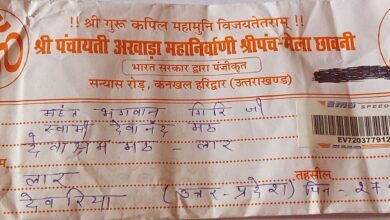 !! श्री गुरू कपिल महामुनि विजयतेतराम् !!
श्री पंचायती अखाड़ा महानिर्वाणी श्रीपंच-मेला छावनी
भारत सरकार द्वारा पंजीकृत
सन्यास रोड़, कनखल हरिद्वार (उत्तराखण्ड)
महंत भगवान गिरि जी
स्वामी देवानंद मठ
देवाश्रम मठ - लार
लार
तहसील
देवरिया (उत्तर-प्रदेश) पिन - 27
SPEED
EV720377912